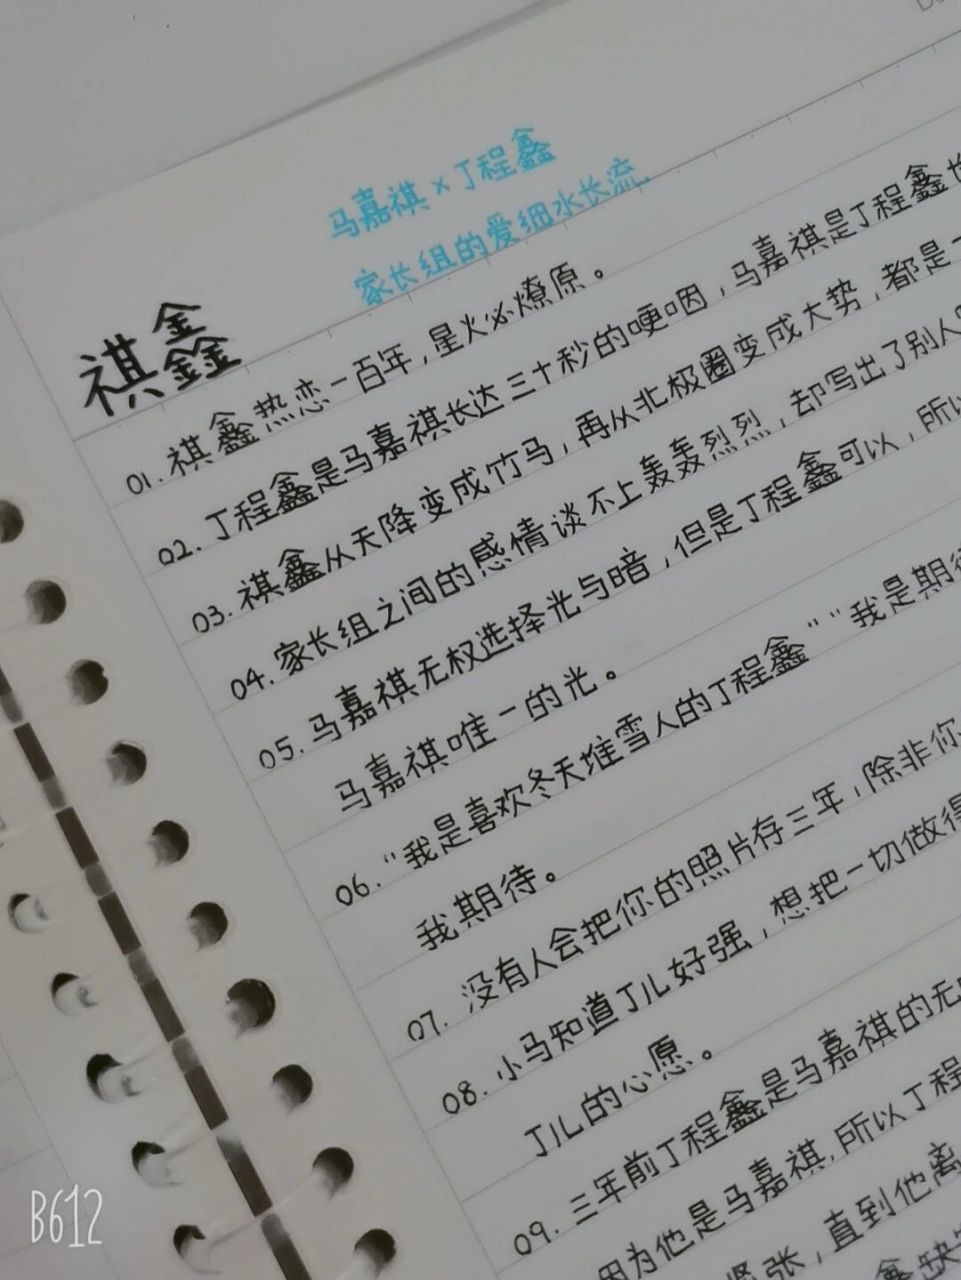 马嘉祺×丁程鑫
家长组的爱细水长流
祺鑫
01. 祺鑫热恋一百年,星火必燎原。
02. 丁程鑫是马嘉祺长达三十秒的哽咽,马嘉祺是丁程鑫
03. 祺鑫从天降变成竹马,再从北极圈变成大势,都是
04. 家长组之间的感情谈不上轰轰烈烈,却写出了别人
05. 马嘉祺无权选择光与暗,但是丁程鑫可以,所以
马嘉祺唯一的光。
06. “我是喜欢冬天堆雪人的丁程鑫”“我是期待
我期待。
07. 没有人会把你的照片存三年,除非你
08. 小马知道丁儿好强,想把一切做得
丁儿的心愿。
09. 三年前丁程鑫是马嘉祺的无
因为他是马嘉祺,所以丁程
紧张,直到他离
鑫缺
B612